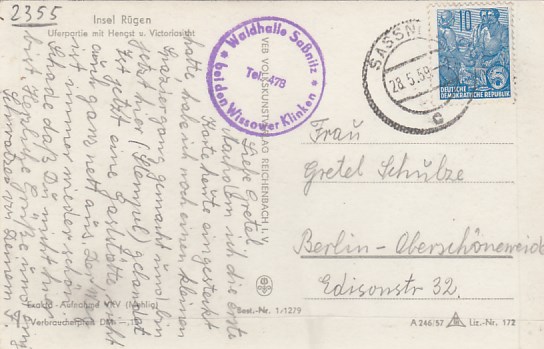 2355
Insel Rügen
Uferpartie mit Hengst u. Victoriasicht
Waldhalle Saßnitz
Tel. 478
bei den Wissower Klinken
SASSNI
28.5.59
10
DEUTSCHE
DEMOKRATISCHE REPUBLIK
Liebe Gretel
Nachdem ich die erste
Karte heute eingesteckt
hatte, habe ich noch einen kleinen
Spaziergang gemacht und bin
jetzt hier (Stempel) gelandet
Ist jetzt eine Gaststätte, sieht
auch ganz nett aus. Der
ist immer wieder schön.
Schade daß Du nicht hier
bist. Herzliche Grüße und
von Deinem
VEB VOLKSKUNSTVERLAG REICHENBACH I. V.
Exakta-Aufnahme VKV (Mehlig)
Verbraucherpreis DM
Best.-Nr. 1/1279
Frau
Gretel Schulze
Berlin-Oberschöneweide
Edisonstr 32.
A 246/57
Liz.-Nr. 172